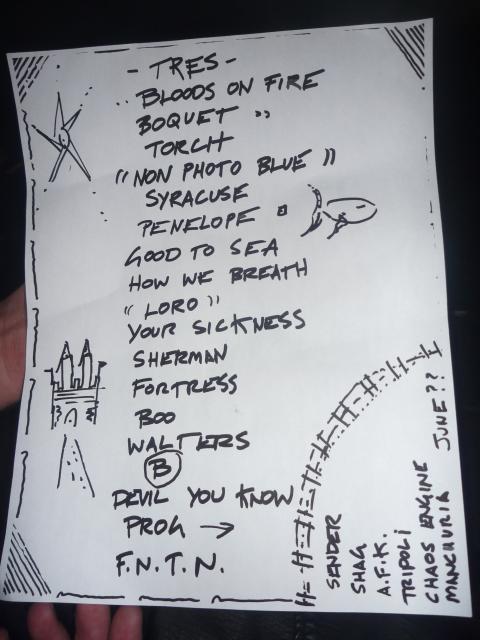 - TRES -
.. BLOODS ON FIRE
BOQUET "
TORCH
"NON PHOTO BLUE"
SYRACUSE
PENELOPE
GOOD TO SEA
HOW WE BREATH
"LORO"
YOUR SICKNESS
SHERMAN
FORTRESS
BOO
WALTERS
B
DEVIL YOU KNOW
PROG →
F.N.T.N.
SENDER
SHAG
A.F.K.
TRIPOLI
CHAOS ENGINE
MANCHURIA JUNE??